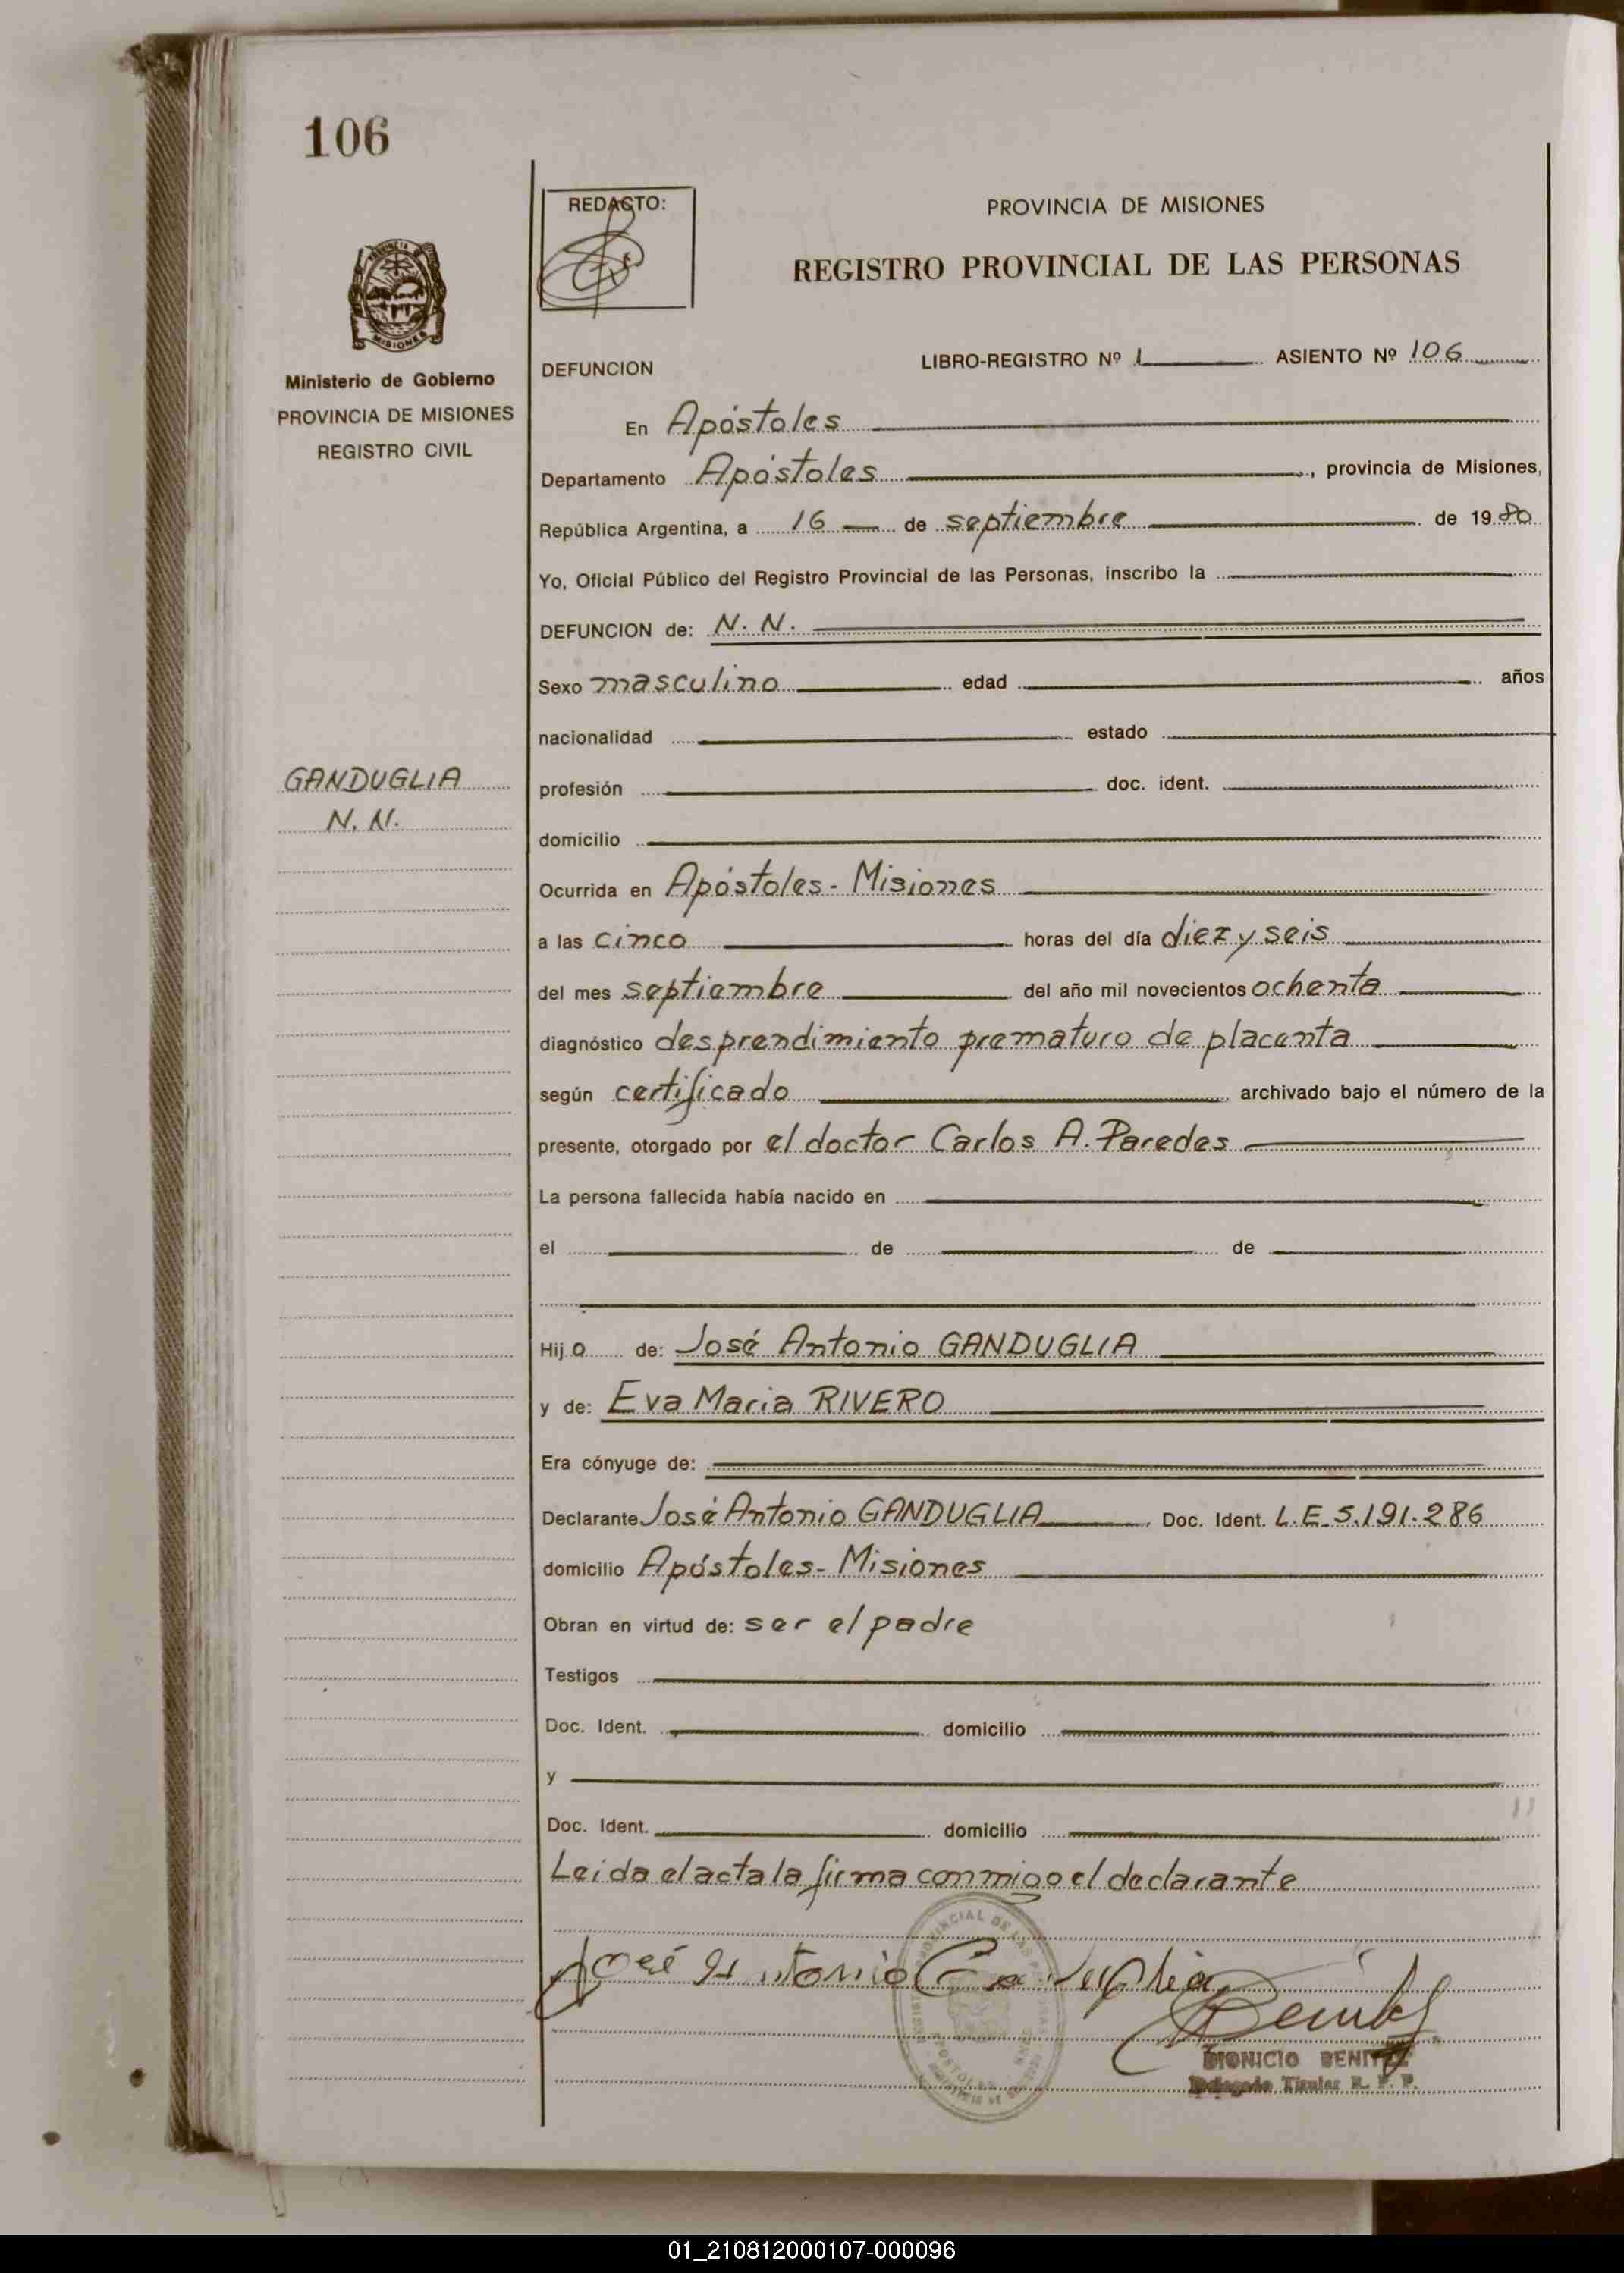 106
REDACTO:
PROVINCIA DE MISIONES
REGISTRO PROVINCIAL DE LAS PERSONAS
MISIONES
Ministerio de Gobierno
PROVINCIA DE MISIONES
REGISTRO CIVIL
DEFUNCION LIBRO-REGISTRO Nº 1 ASIENTO Nº 106
En Apóstoles
Departamento Apóstoles, provincia de Misiones,
República Argentina, a 16 de septiembre de 1980
Yo, Oficial Público del Registro Provincial de las Personas, inscribo la
DEFUNCION de: N. N.
Sexo masculino edad años
nacionalidad estado
GANDUGLIA
N. N.
profesión doc. ident.
domicilio
Ocurrida en Apóstoles - Misiones
a las cinco horas del día diez y seis
del mes septiembre del año mil novecientos ochenta
diagnóstico desprendimiento prematuro de placenta
según certificado archivado bajo el número de la
presente, otorgado por el doctor Carlos A. Paredes
La persona fallecida había nacido en
el de de
Hijo de: José Antonio GANDUGLIA
y de: Eva Maria RIVERO
Era cónyuge de:
Declarante José Antonio GANDUGLIA Doc. Ident. L.E. 5.191.286
domicilio Apóstoles - Misiones
Obran en virtud de: ser el padre
Testigos
Doc. Ident. domicilio
y
Doc. Ident. domicilio
Leida el acta la firma conmigo el declarante
José Antonio Ganduglia
DIONICIO BENITEZ
Delegado Titular R. P. P.
01_210812000107-000096